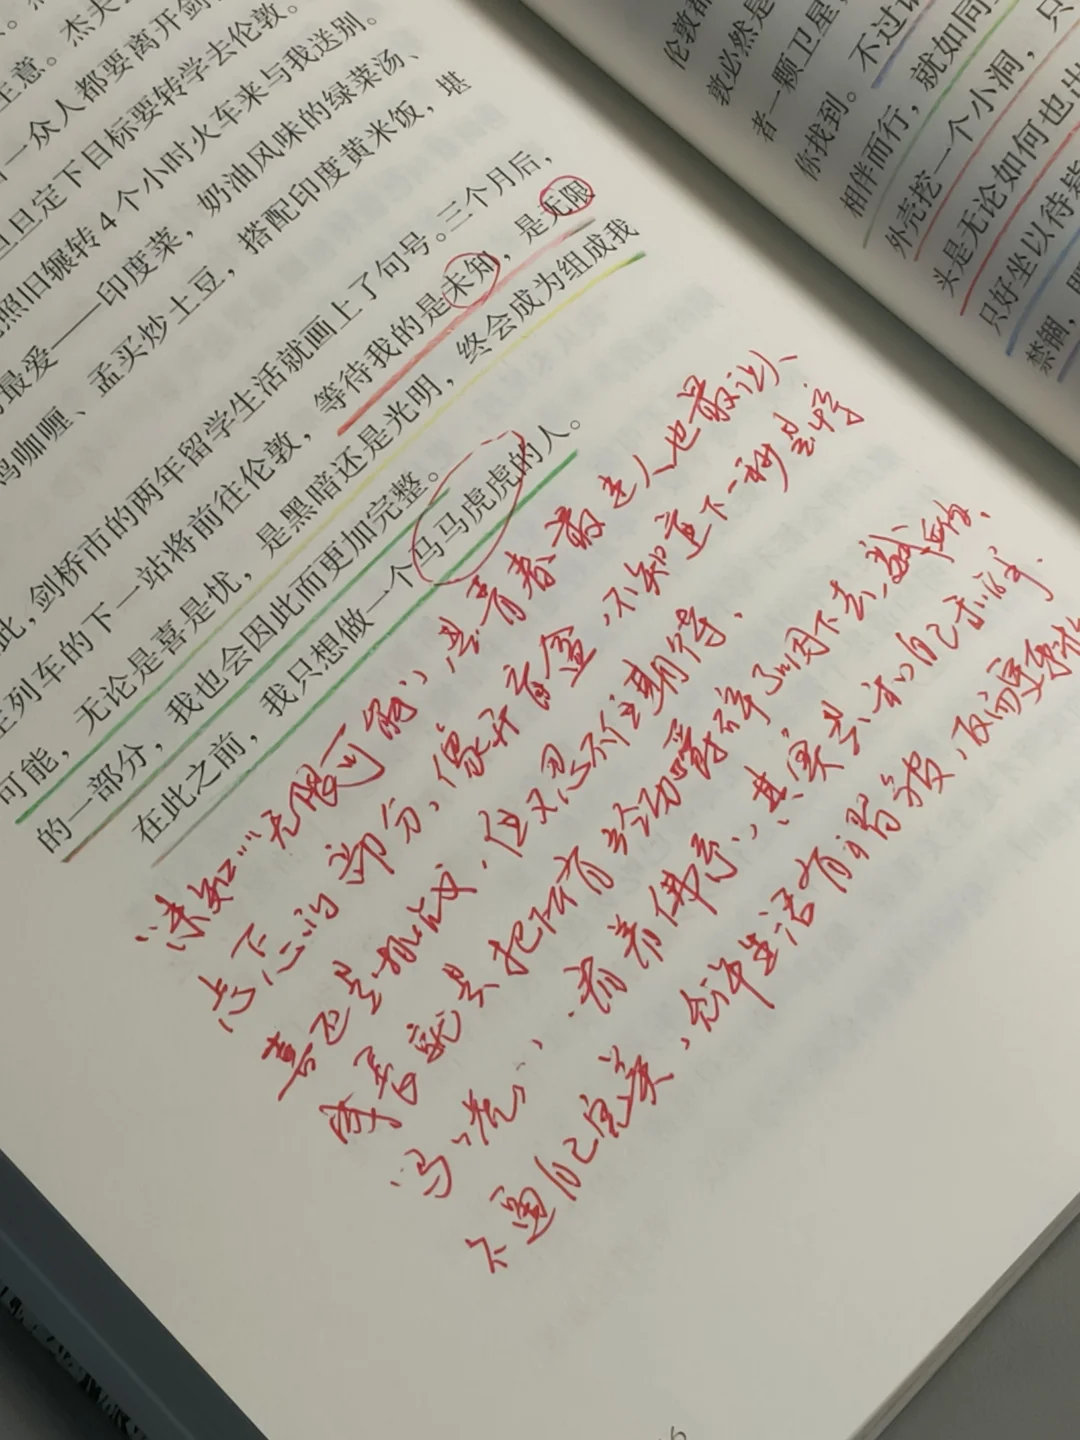 生意。杰夫
一众人都要离开剑
且定下目标要转学去伦敦。
照旧辗转4个小时火车来与我送别。
最爱——印度菜，奶油风味的绿菜汤、
鸡咖喱、孟买炒土豆，搭配印度黄米饭，堪
此，剑桥市的两年留学生活就画上了句号。三个月后，
列车的下一站将前往伦敦，等待我的是未知，是无限
可能，无论是喜是忧，是黑暗还是光明，终会成为组成我
的一部分，我也会因此而更加完整。
在此之前，我只想做一个马马虎虎的人。
“未知”“无限可能”，是青春最迷人也最让人
忐忑的部分，像开盲盒，不知道下一秒是惊
喜还是挑战，但又忍不住期待，
成长就是把所有 嚼碎了咽下去
看着佛系，其实是和自己和解，
不逼自己完美，允许生活有褶皱，反而更
伦敦
敦必然是
者一颗卫星，
你找到。不过
相伴而行，就如同
外壳挖一个小洞，只
头是无论如何也出
只好坐以待毙
禁锢，
6